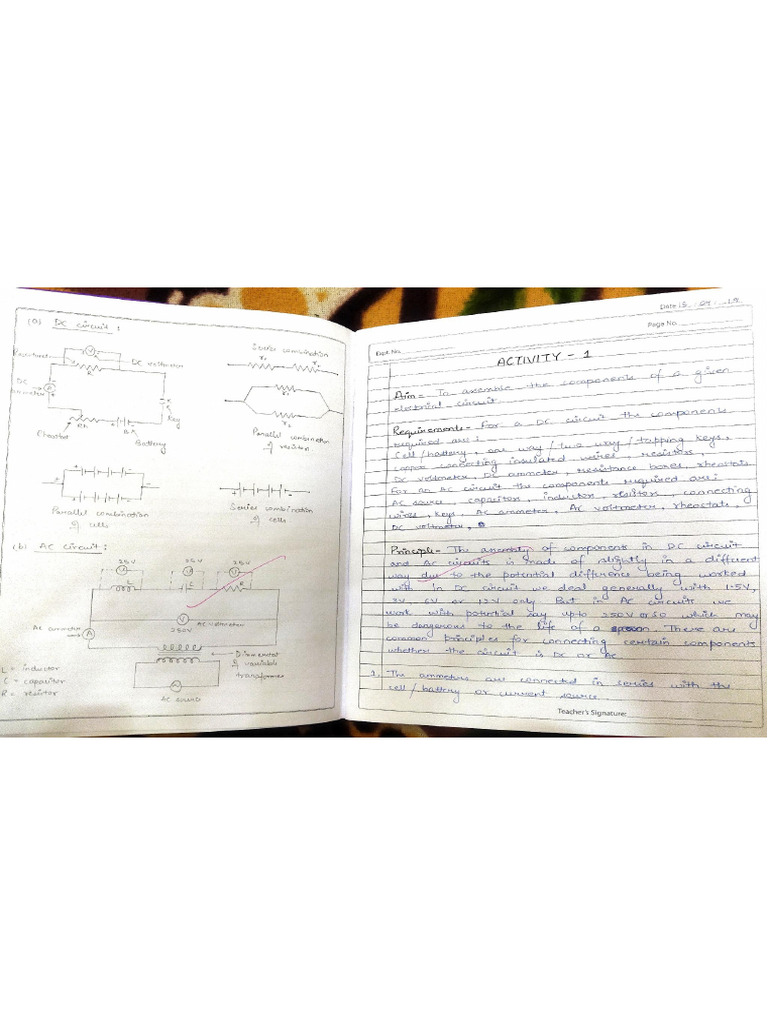 (a) DC circuit :
Resistance
V
DC voltmeter
R
DC
ammeter
A
K
Key
Rh
B.A
Rheostat
Battery
Series combination
r₁
r₂
Parallel combination
of resistors
Parallel combination
of cells
Series combination
of cells
(b) AC circuit :
25V
25V
25V
V
V
V
L
C
R
V
AC voltmeter
250V
AC ammeter
A
of variable
transformer
L = inductor
C = capacitor
R = resistor
AC source
Date 15.04.19
Page No.
Expt. No.
ACTIVITY - 1
Aim = To assemble the components of a given
electrical circuit
Requirements - For a DC circuit the components
required are :
Cell / battery, one way / two way / tapping keys,
copper connecting insulated wires, resistors,
DC voltmeter, DC ammeter, resistance boxes, rheostats
For an AC circuit the components required are :
AC source, capacitors, inductor, resistor, connecting
wires, keys, AC ammeter, AC voltmeter, rheostats,
DC voltmeter,
Principle - The assembly of components in DC circuit
and AC circuits is made of slightly in a different
way due to the potential difference being worked
with. In DC circuit we deal generally with 1.5V,
2V 6V or 12V only. But in AC circuits we
work with potential say upto 250V or so which may
be dangerous to the life of a person. There are
common principles for connecting certain components
whether the circuit is DC or AC
1. The ammeters are connected in series with the
cell / battery or current source
Teacher's Signature: